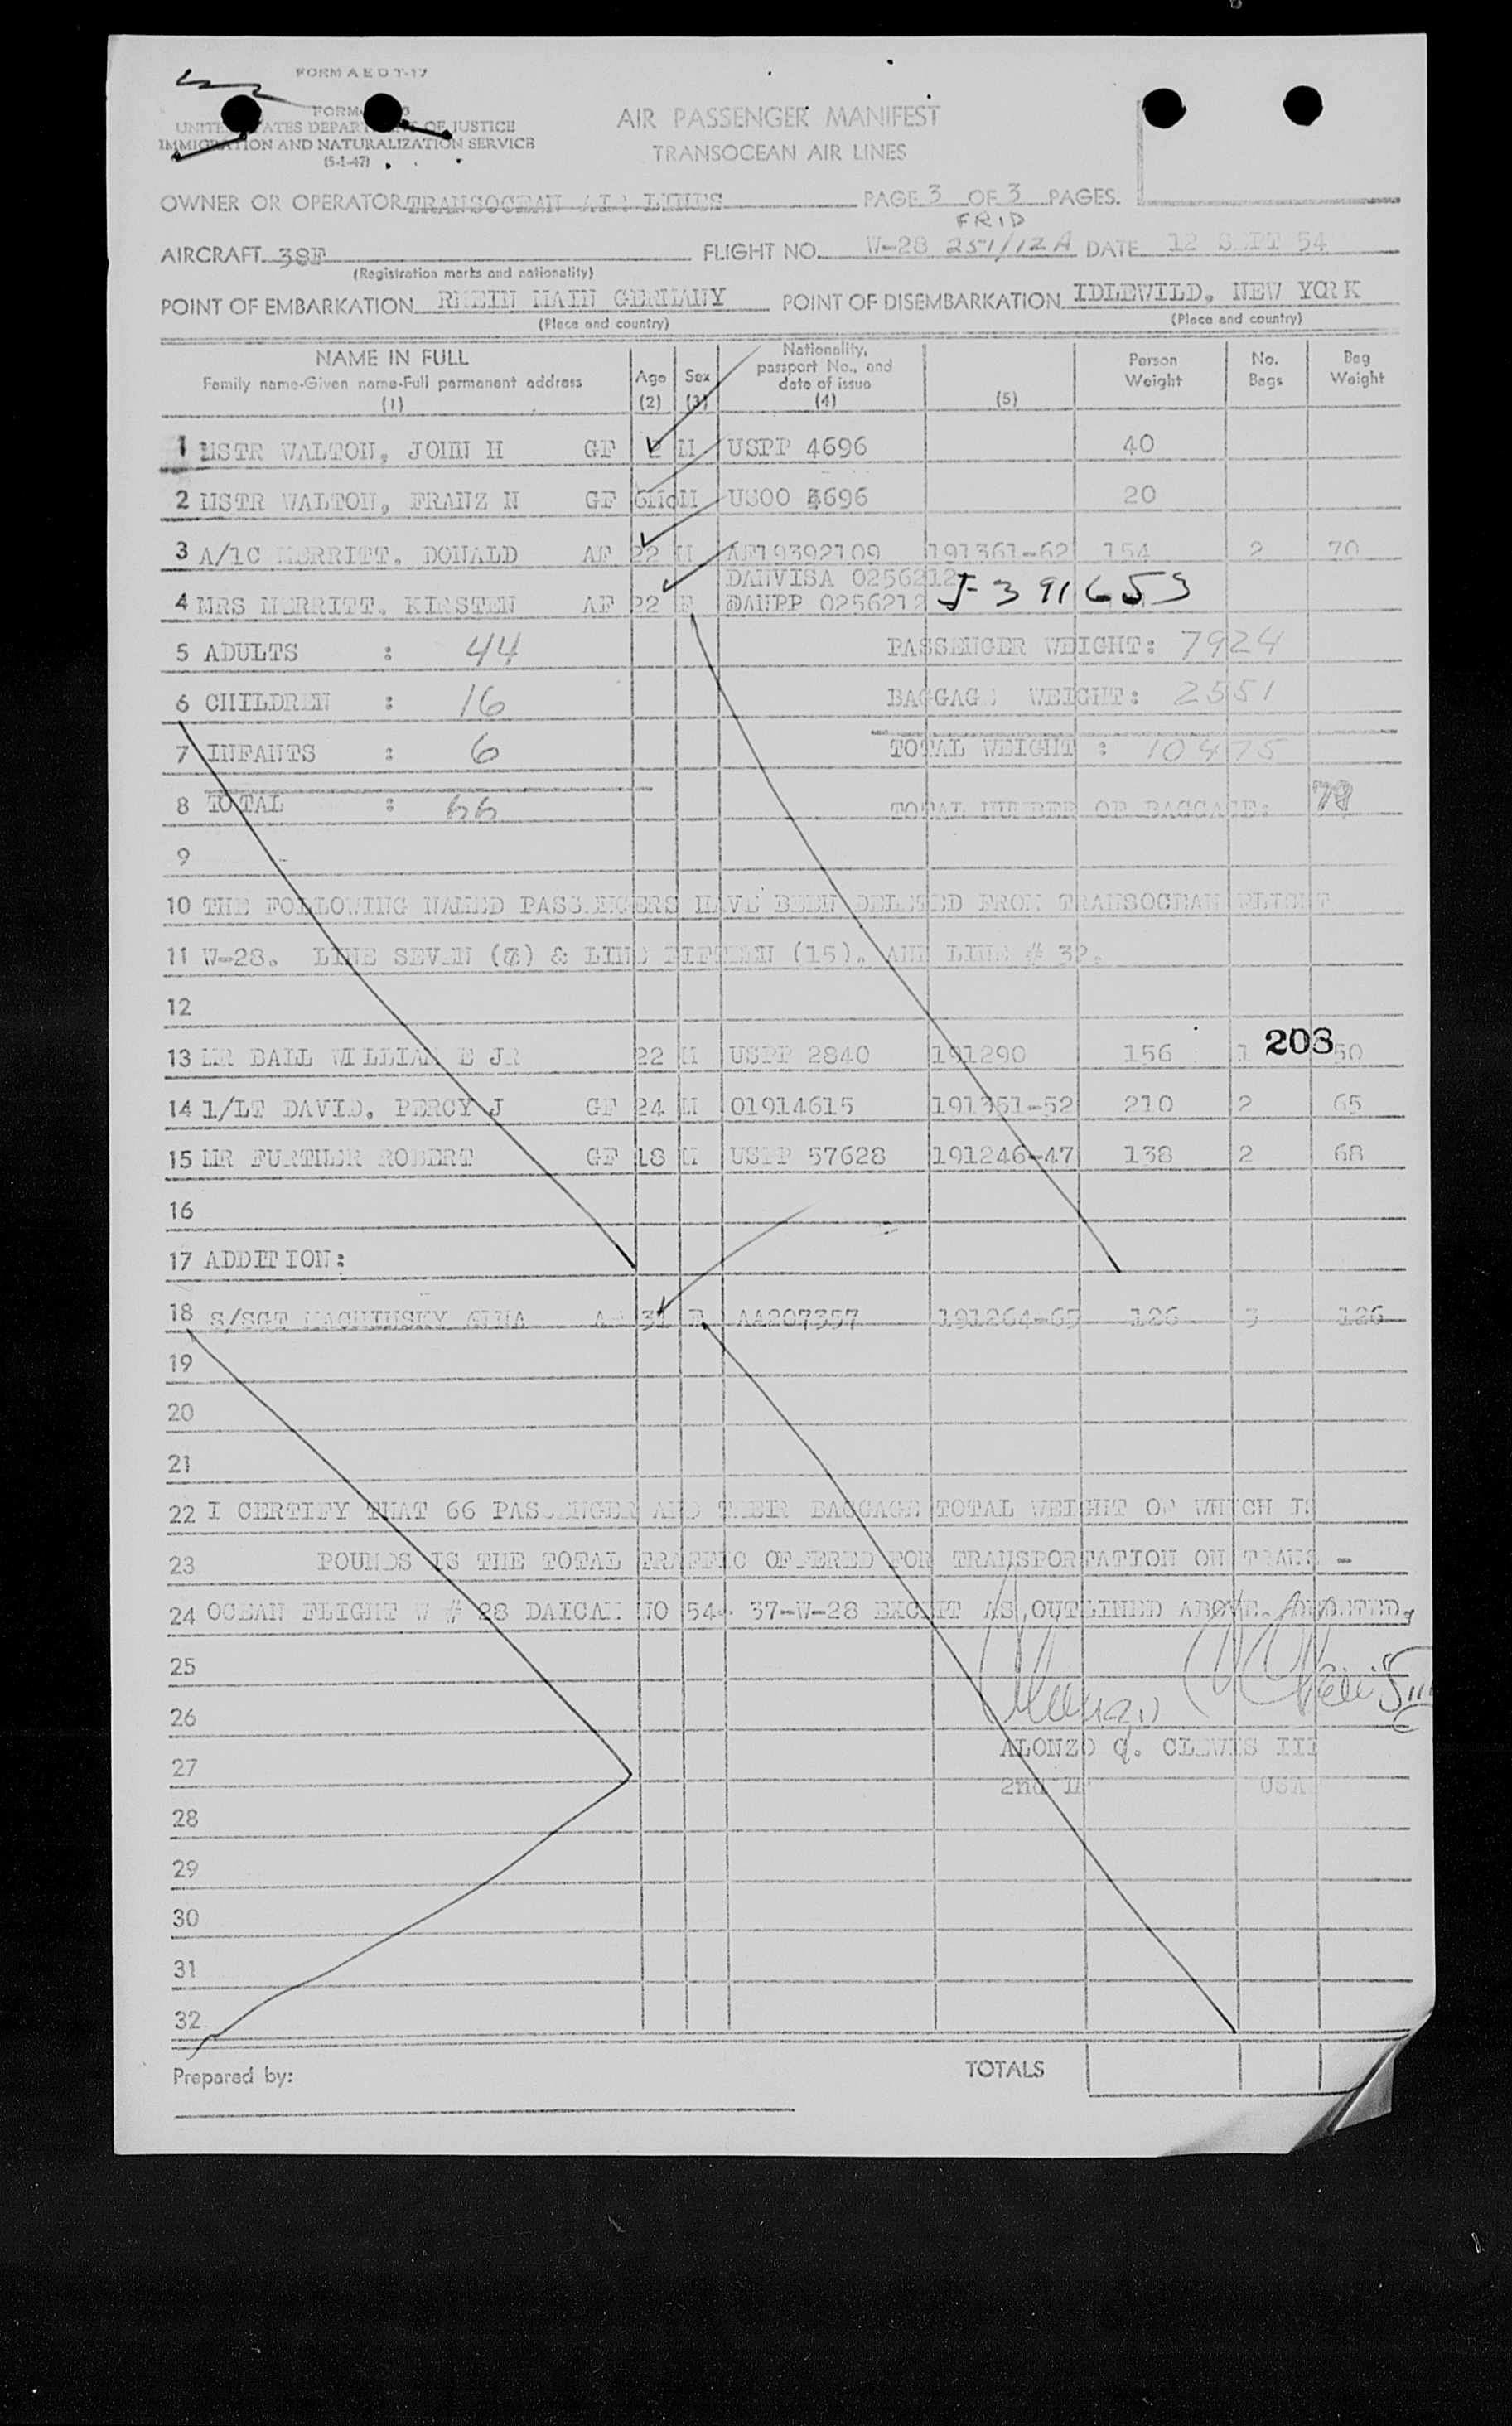 FORM A E D T-17
FORM
UNITED STATES DEPARTMENT OF JUSTICE
IMMIGRATION AND NATURALIZATION SERVICE
(5-1-47)
AIR PASSENGER MANIFEST
TRANSOCEAN AIR LINES
OWNER OR OPERATOR TRANSOCEAN AIR LINES PAGE 3 OF 3 PAGES.
FRID
AIRCRAFT 38F FLIGHT NO. W-28 251/12A DATE 12 SEPT 54
(Registration marks and nationality)
POINT OF EMBARKATION RHEIN MAIN GERMANY POINT OF DISEMBARKATION IDLEWILD, NEW YORK
(Place and country) (Place and country)
NAME IN FULL Age Sex Nationality, passport No., and date of issue Person Weight No. Bags Bag Weight
Family name-Given name-Full permanent address
(1) (2) (3) (4) (5)
1 MSTR WALTON, JOHN H GF 2 M USPP 4696 40
2 MSTR WALTON, FRANZ N GF 6Mo M USOO 4696 20
3 A/1C MERRITT. DONALD AF 22 M AF19392109 191361-62 154 2 70
DANVISA 0256212
4 MRS MERRITT. KIRSTEN AF 22 F DANPP 0256212 J-391653
5 ADULTS : 44 PASSENGER WEIGHT: 7924
6 CHILDREN : 16 BAGGAGE WEIGHT: 2551
7 INFANTS : 6 TOTAL WEIGHT : 10475
8 TOTAL : 66 TOTAL NUMBER OF BAGGAGE:
9
10 THE FOLLOWING NAMED PASSENGERS HAVE BEEN DELETED FROM TRANSOCEAN FLIGHT
11 W-28. LINE SEVEN (7) & LINE FIFTEEN (15). AND LINE # 32.
12
208
13 MR BALL WILLIAM E JR 22 M USPP 2840 191290 156 1 50
14 1/LT DAVID, PERCY J GF 24 M 01914615 191351-52 210 2 65
15 MR FURTHER ROBERT GF 18 M USPP 57628 191246-47 138 2 68
16
17 ADDITION:
18 S/SGT MACHINSKY ANNA AF 31 F AA207357 191264-65 126 3 126
19
20
21
22 I CERTIFY THAT 66 PASSENGER AND THEIR BAGGAGE TOTAL WEIGHT OF WHICH IS
23 POUNDS IS THE TOTAL TRAFFIC OFFERED FOR TRANSPORTATION ON TRANS -
24 OCEAN FLIGHT W # 28 DAICAM NO 54- 37-W-28 EXCEPT AS OUTLINED ABOVE.
25
26
27 ALONZO C. CLEWIS III
2nd Lt USAF
28
29
30
31
32
Prepared by: TOTALS